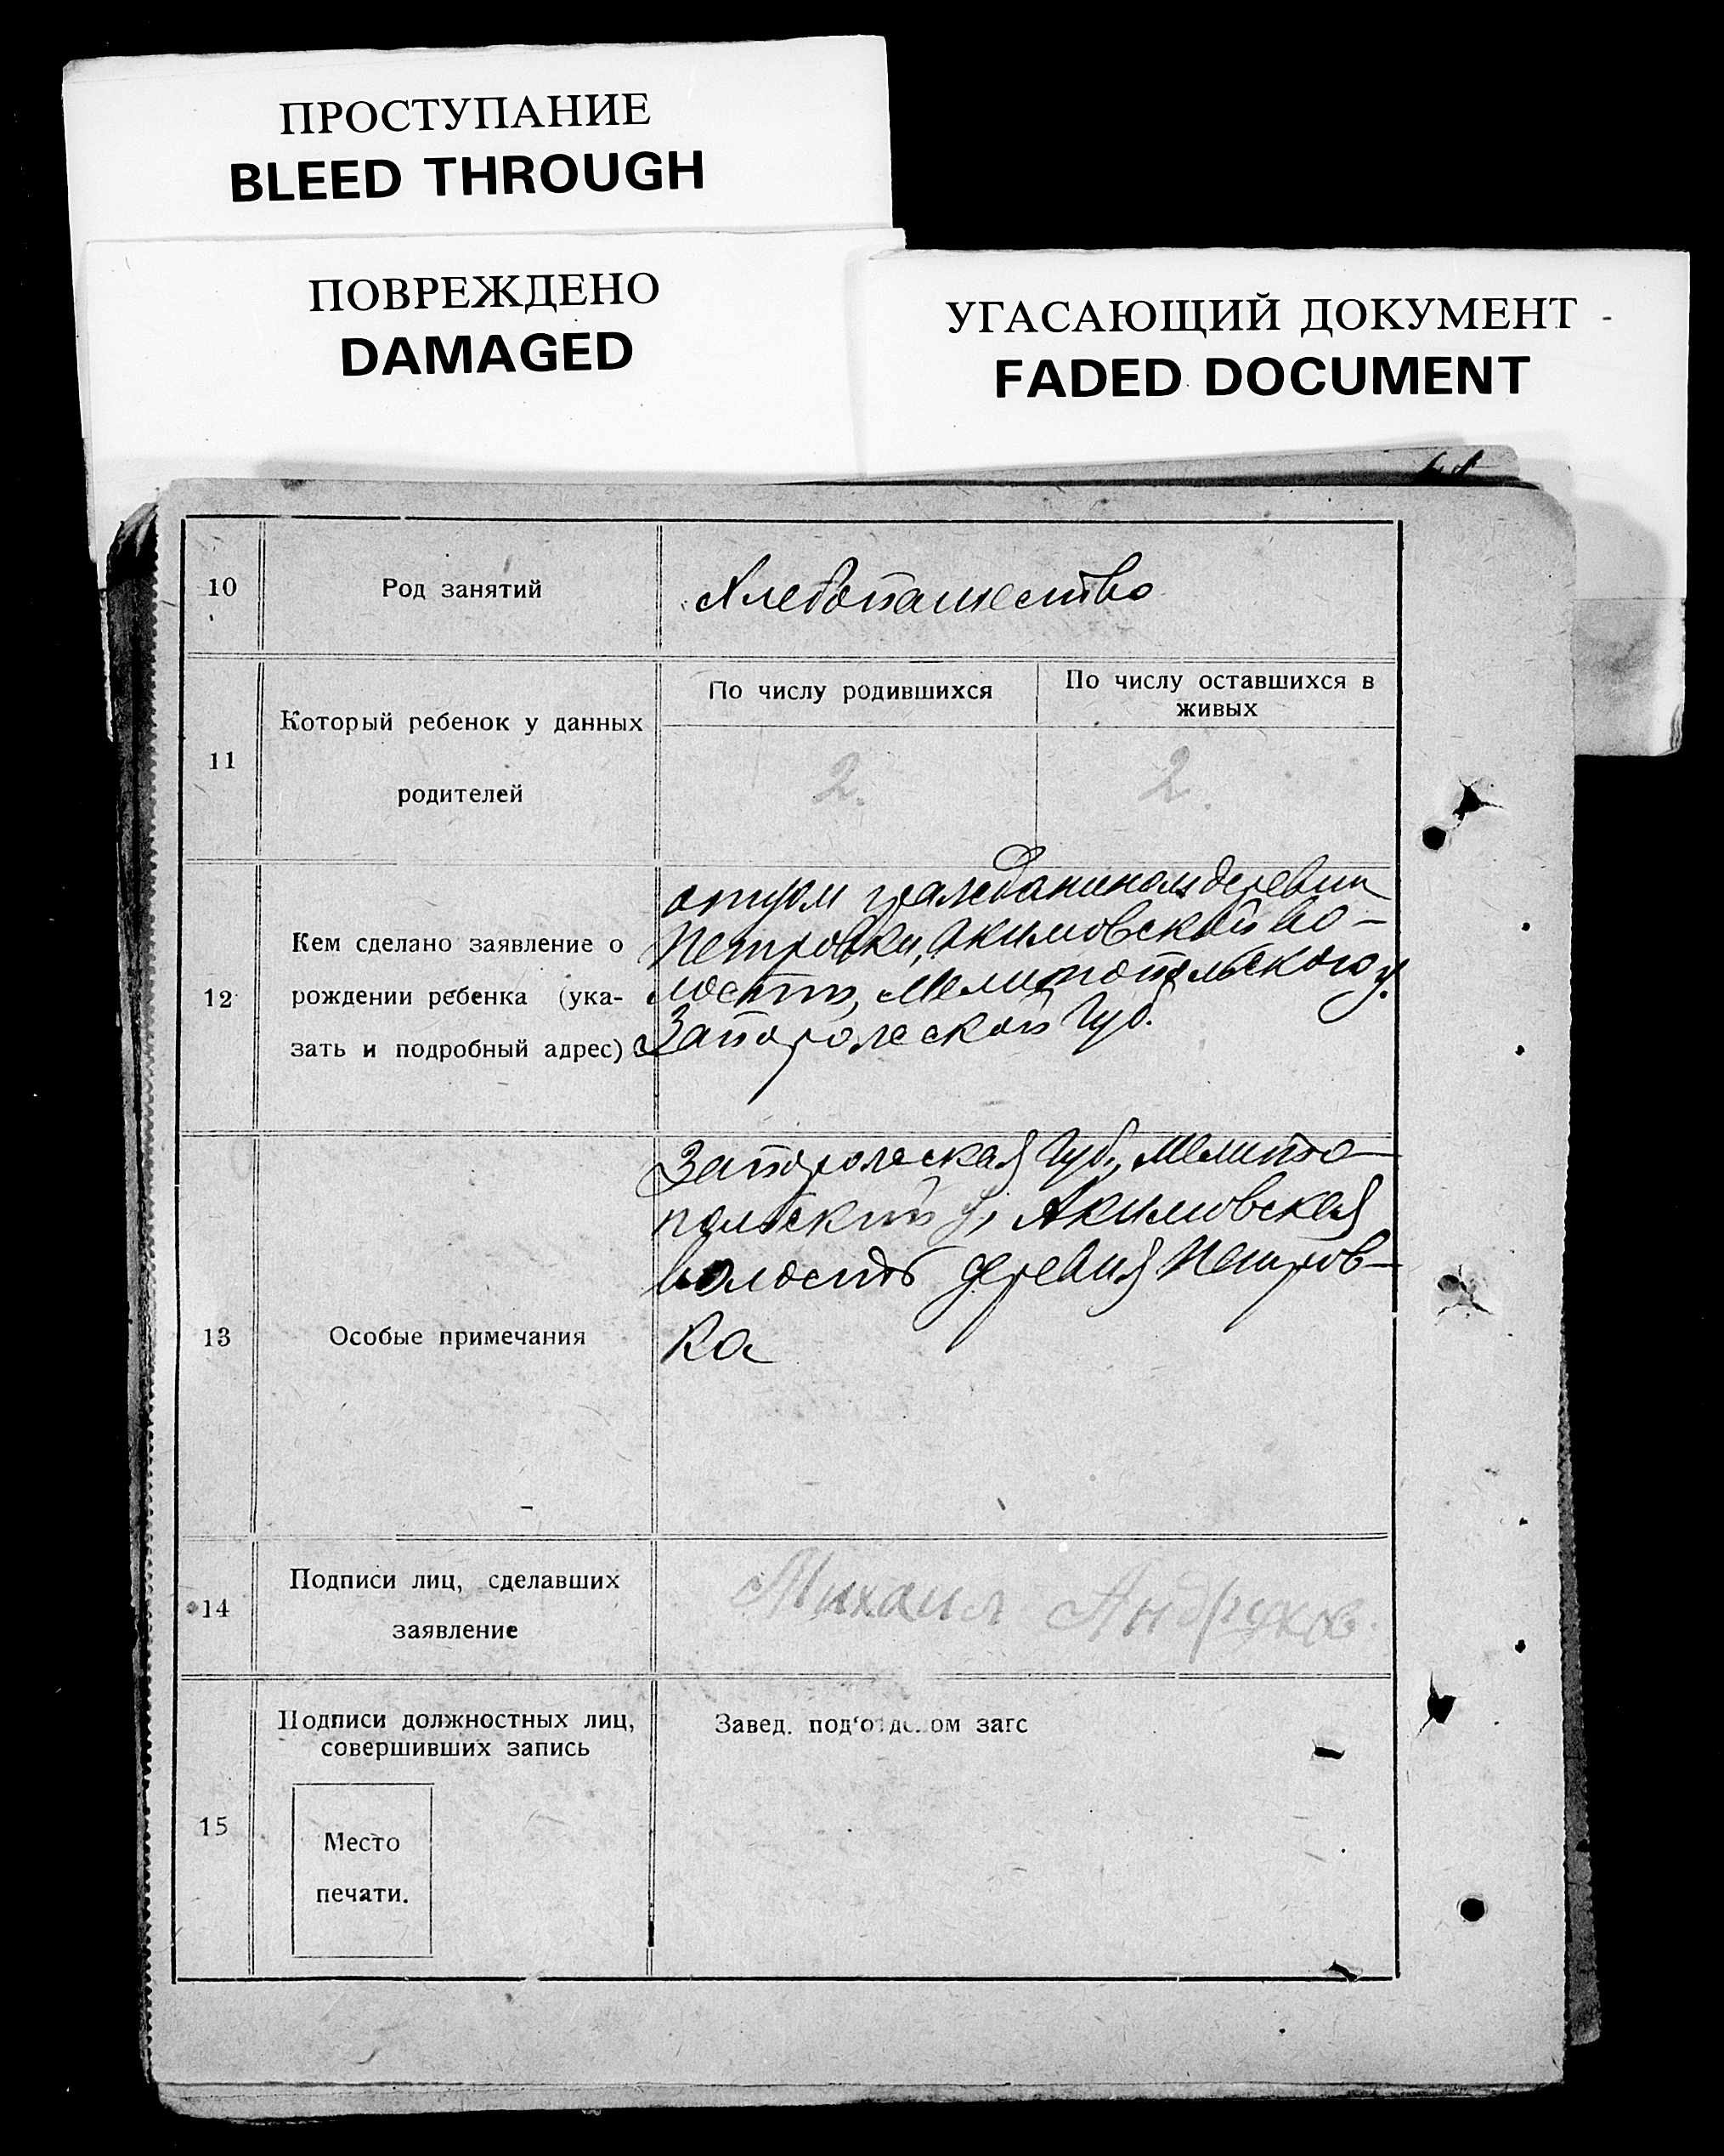 ПРОСТУПАНИЕ
BLEED THROUGH
ПОВРЕЖДЕНО
DAMAGED
УГАСАЮЩИЙ ДОКУМЕНТ
FADED DOCUMENT
10
Род занятий
Хлебопашество
11
Который ребенок у данных
родителей
По числу родившихся
По числу оставшихся в
живых
2.
2.
12
Кем сделано заявление о
рождении ребенка (ука-
зать и подробный адрес)
отцом гражданином деревни
Петровки, Акимовской во-
лости, Мелитопольского у.
Запорожской Губ.
13
Особые примечания
Запорожская Губ., Мелито-
польский у, Акимовская
волость деревня Петров-
ка
14
Подписи лиц, сделавших
заявление
Михаил
15
Подписи должностных лиц,
совершивших запись
Место
печати.
Завед. под'отделом загс